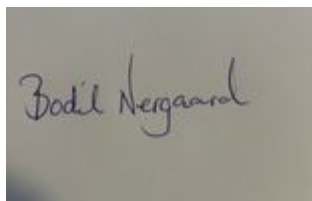 Bodil Nergaard